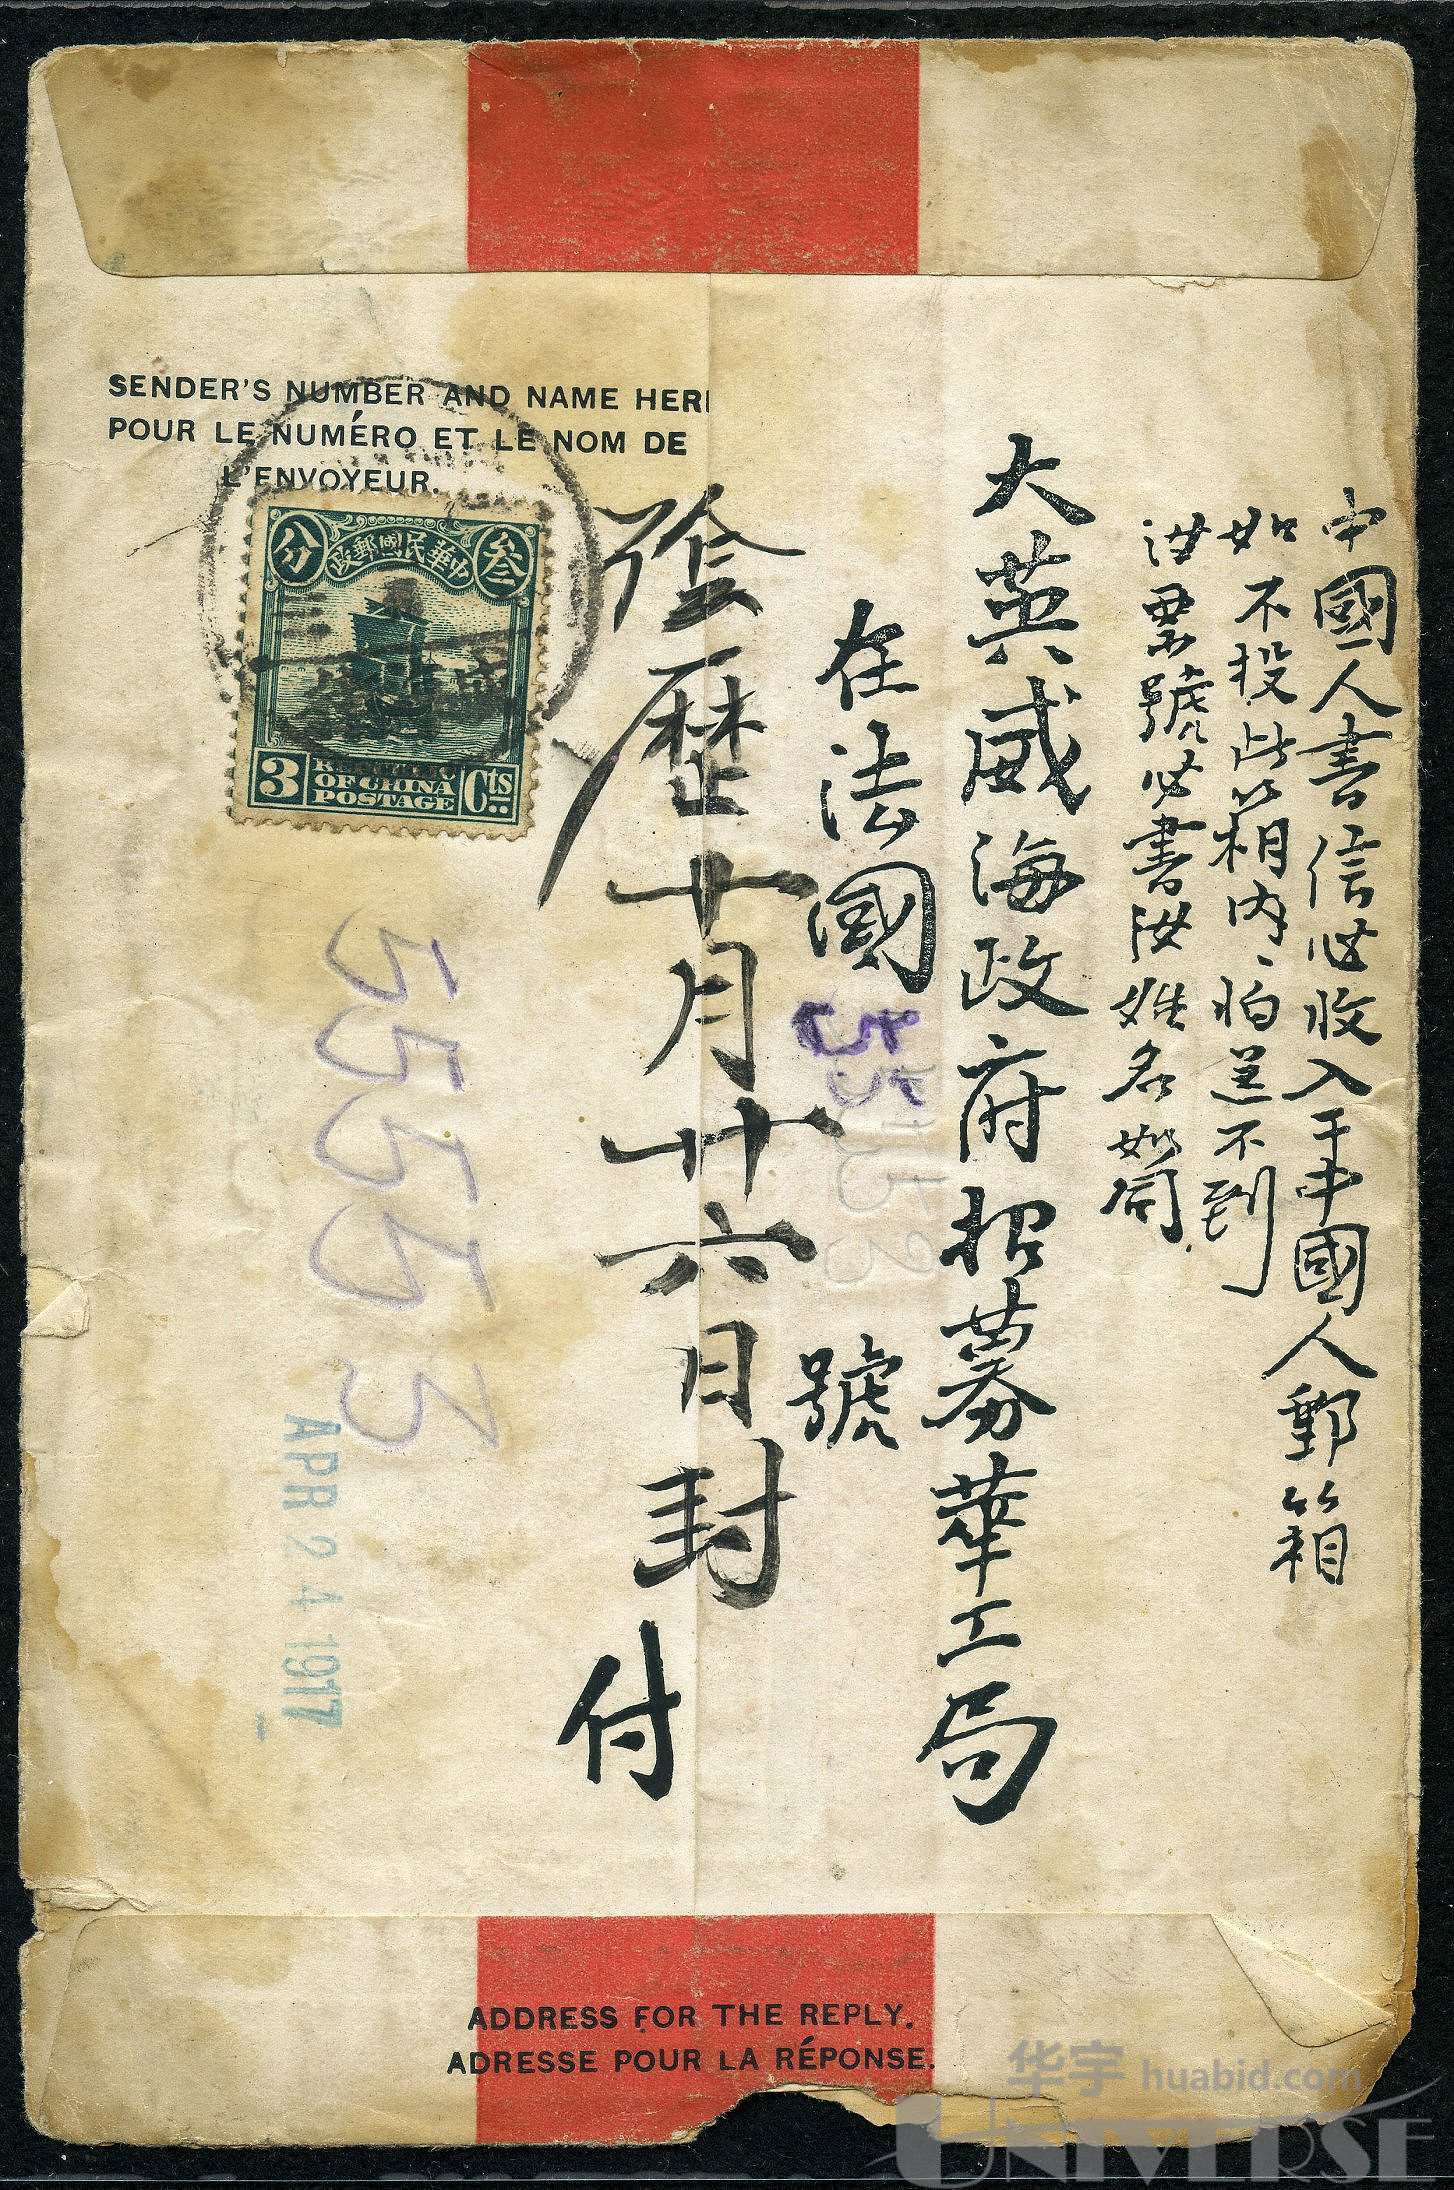 SENDER'S NUMBER AND NAME HER
POUR LE NUMÉRO ET LE NOM DE
L'ENVOYEUR.
中華民國郵政
叁
分
3
REPUBLIC
OF CHINA
POSTAGE
Cts
中國人書信必收入于中國人郵箱
如不投此箱内、怕送不到
汝票號必書汝姓名如何
大英威海政府招募華工局
在法國
號
陰歷十月廿六日封
付
55553
APR 24 1917
ADDRESS FOR THE REPLY.
ADRESSE POUR LA RÉPONSE.
华宇 huabid.com
UNIVERSE